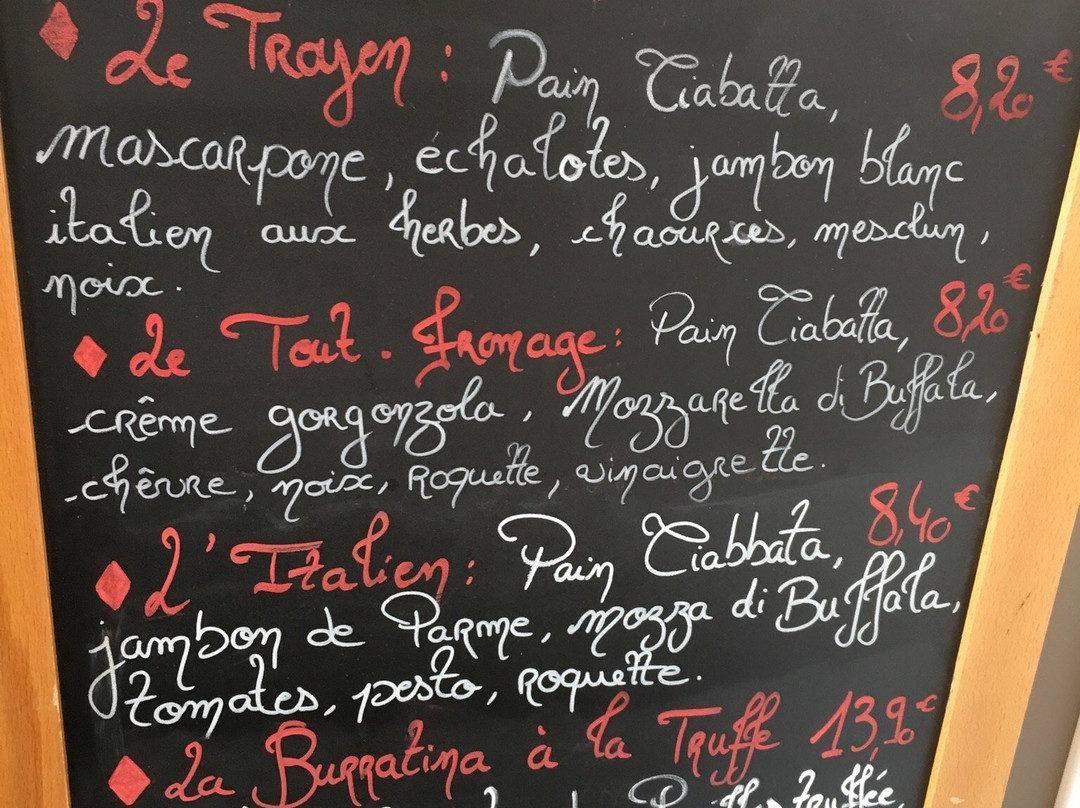 Le Troyen : Pain Ciabatta, 8,20 €
mascarpone, échalotes, jambon blanc
italien aux herbes, chaources, mesclun,
noix.
Le Tout. fromage : Pain Ciabatta, 8,20 €
crême gorgonzola, Mozzarella di Buffala,
chêvre, noix, roquette, vinaigrette.
L'Italien : Pain Ciabbata, 8,40 €
jambon de Parme, mozza di Buffala,
tomates, pesto, roquette.
La Burratina à la Truffe 13,90 €
truffée